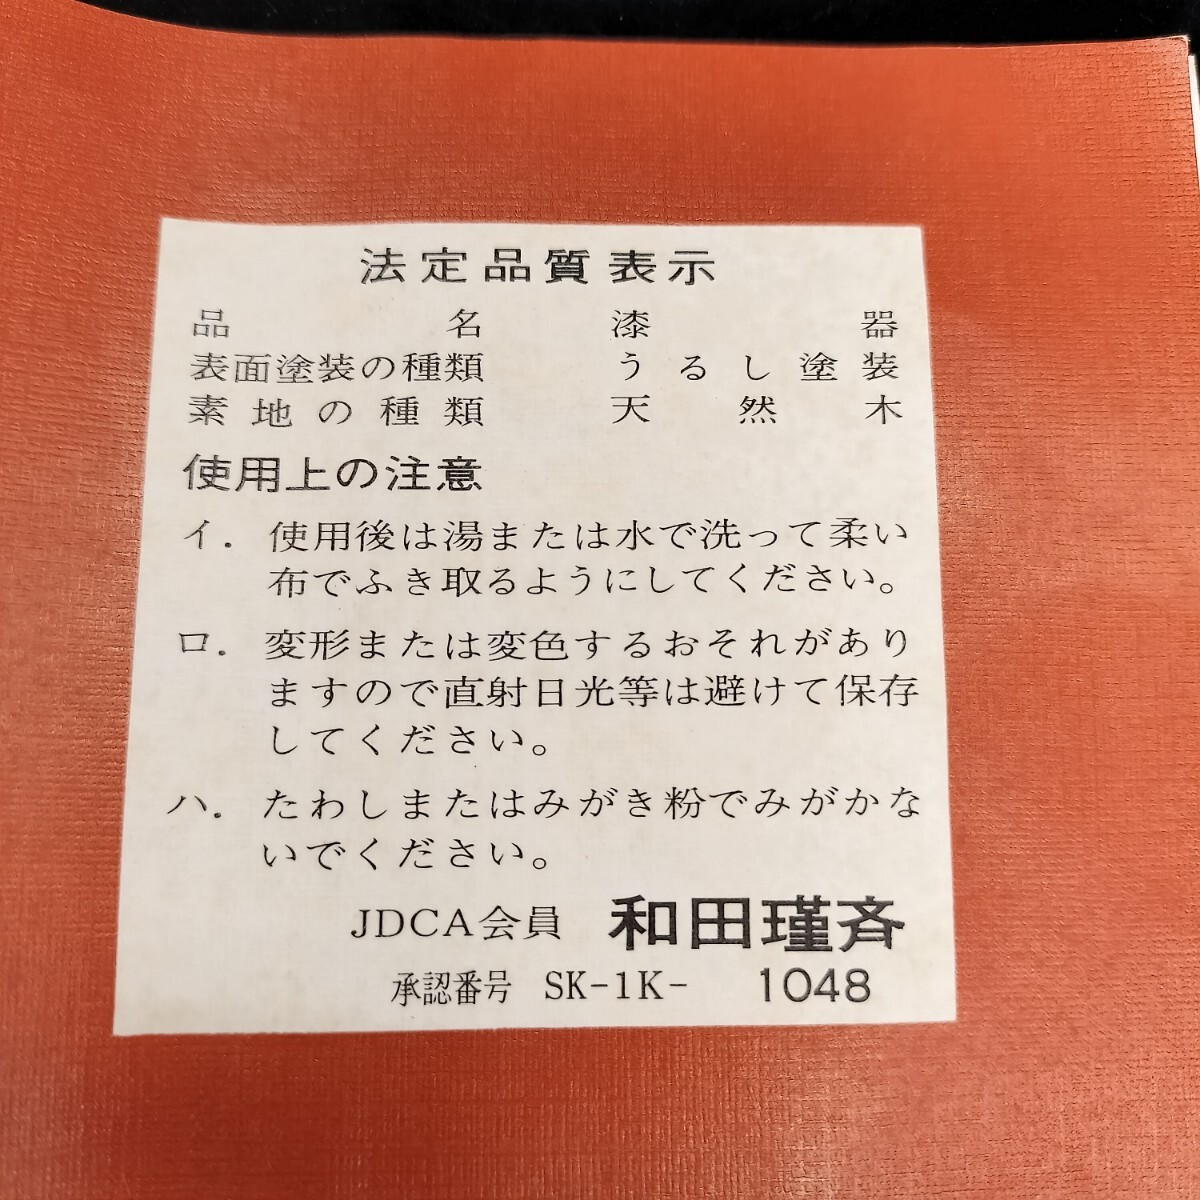 法定品質表示
品名 漆器
表面塗装の種類 うるし塗装
素地の種類 天然木
使用上の注意
イ. 使用後は湯または水で洗って柔い
布でふき取るようにしてください。
ロ. 変形または変色するおそれがあり
ますので直射日光等は避けて保存
してください。
ハ. たわしまたはみがき粉でみがかな
いでください。
JDCA会員 和田瑾斉
承認番号 SK-1K- 1048